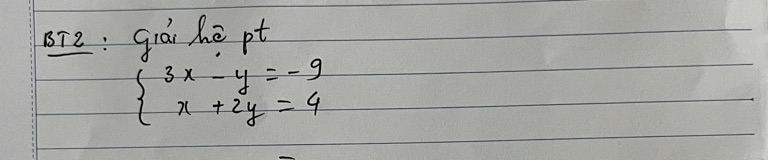 BT2 : Giải hệ pt
{ 3x - y = -9
x + 2y = 4